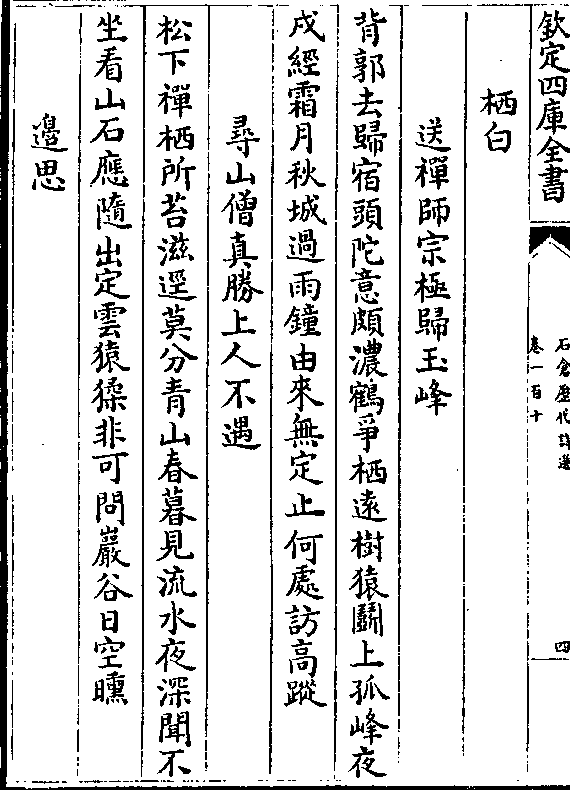 欽定四庫全書
石倉歷代詩選
卷一百十
四
栖白
送禪師宗極歸玉峰
背郭去歸宿頭陀意頗濃鶴爭栖遠樹猿鬭上孤峰夜
戍經霜月秋城過雨鐘由來無定止何處訪高蹤
尋山僧真勝上人不遇
松下禪栖所苔滋逕莫分青山春暮見流水夜深聞不
坐看山石應隨出定雲猿猱非可問巖谷日空曛
邊思